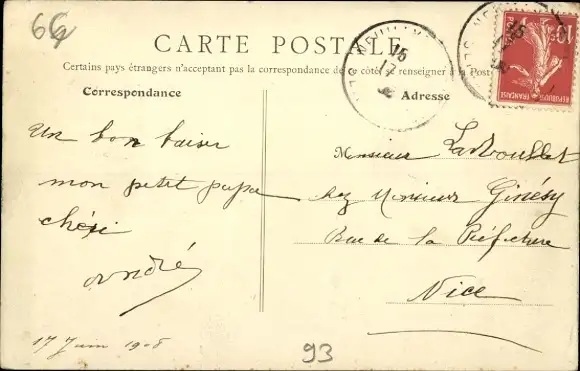 66
CARTE POSTALE
Certains pays étrangers n'acceptant pas la correspondance de ce côté se renseigner à la Poste
Correspondance
Adresse
Un bon baiser
mon petit papa
chéri
André
17 Juin 1908
Monsieur
chez Monsieur Ginésy
Rue de la Préfecture
Nice
93
15
17
10c
REPUBLIQUE FRANÇAISE